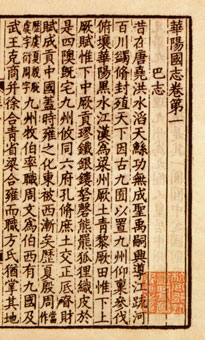 華陽國志卷第一
巴志
昔在唐堯洪水滔天鯀功無成聖禹嗣興導江疏河
百川蠲修封殖天下因古九囿以置九州仰稟參伐
俯壤華陽黑水江漢為梁州厥土青黎厥田惟下上
厥賦惟下中厥貢璆鐵銀鏤砮磬熊羆狐狸織皮於
是四隩既宅九州攸同六府孔修庶土交正底慎財
賦成貢中國蓋時雍之化東被西漸矣歷夏殷周
九州牧伯率職周文為伯西有九國及
武王克商并徐合青省梁合雍而職方氏猶掌其地